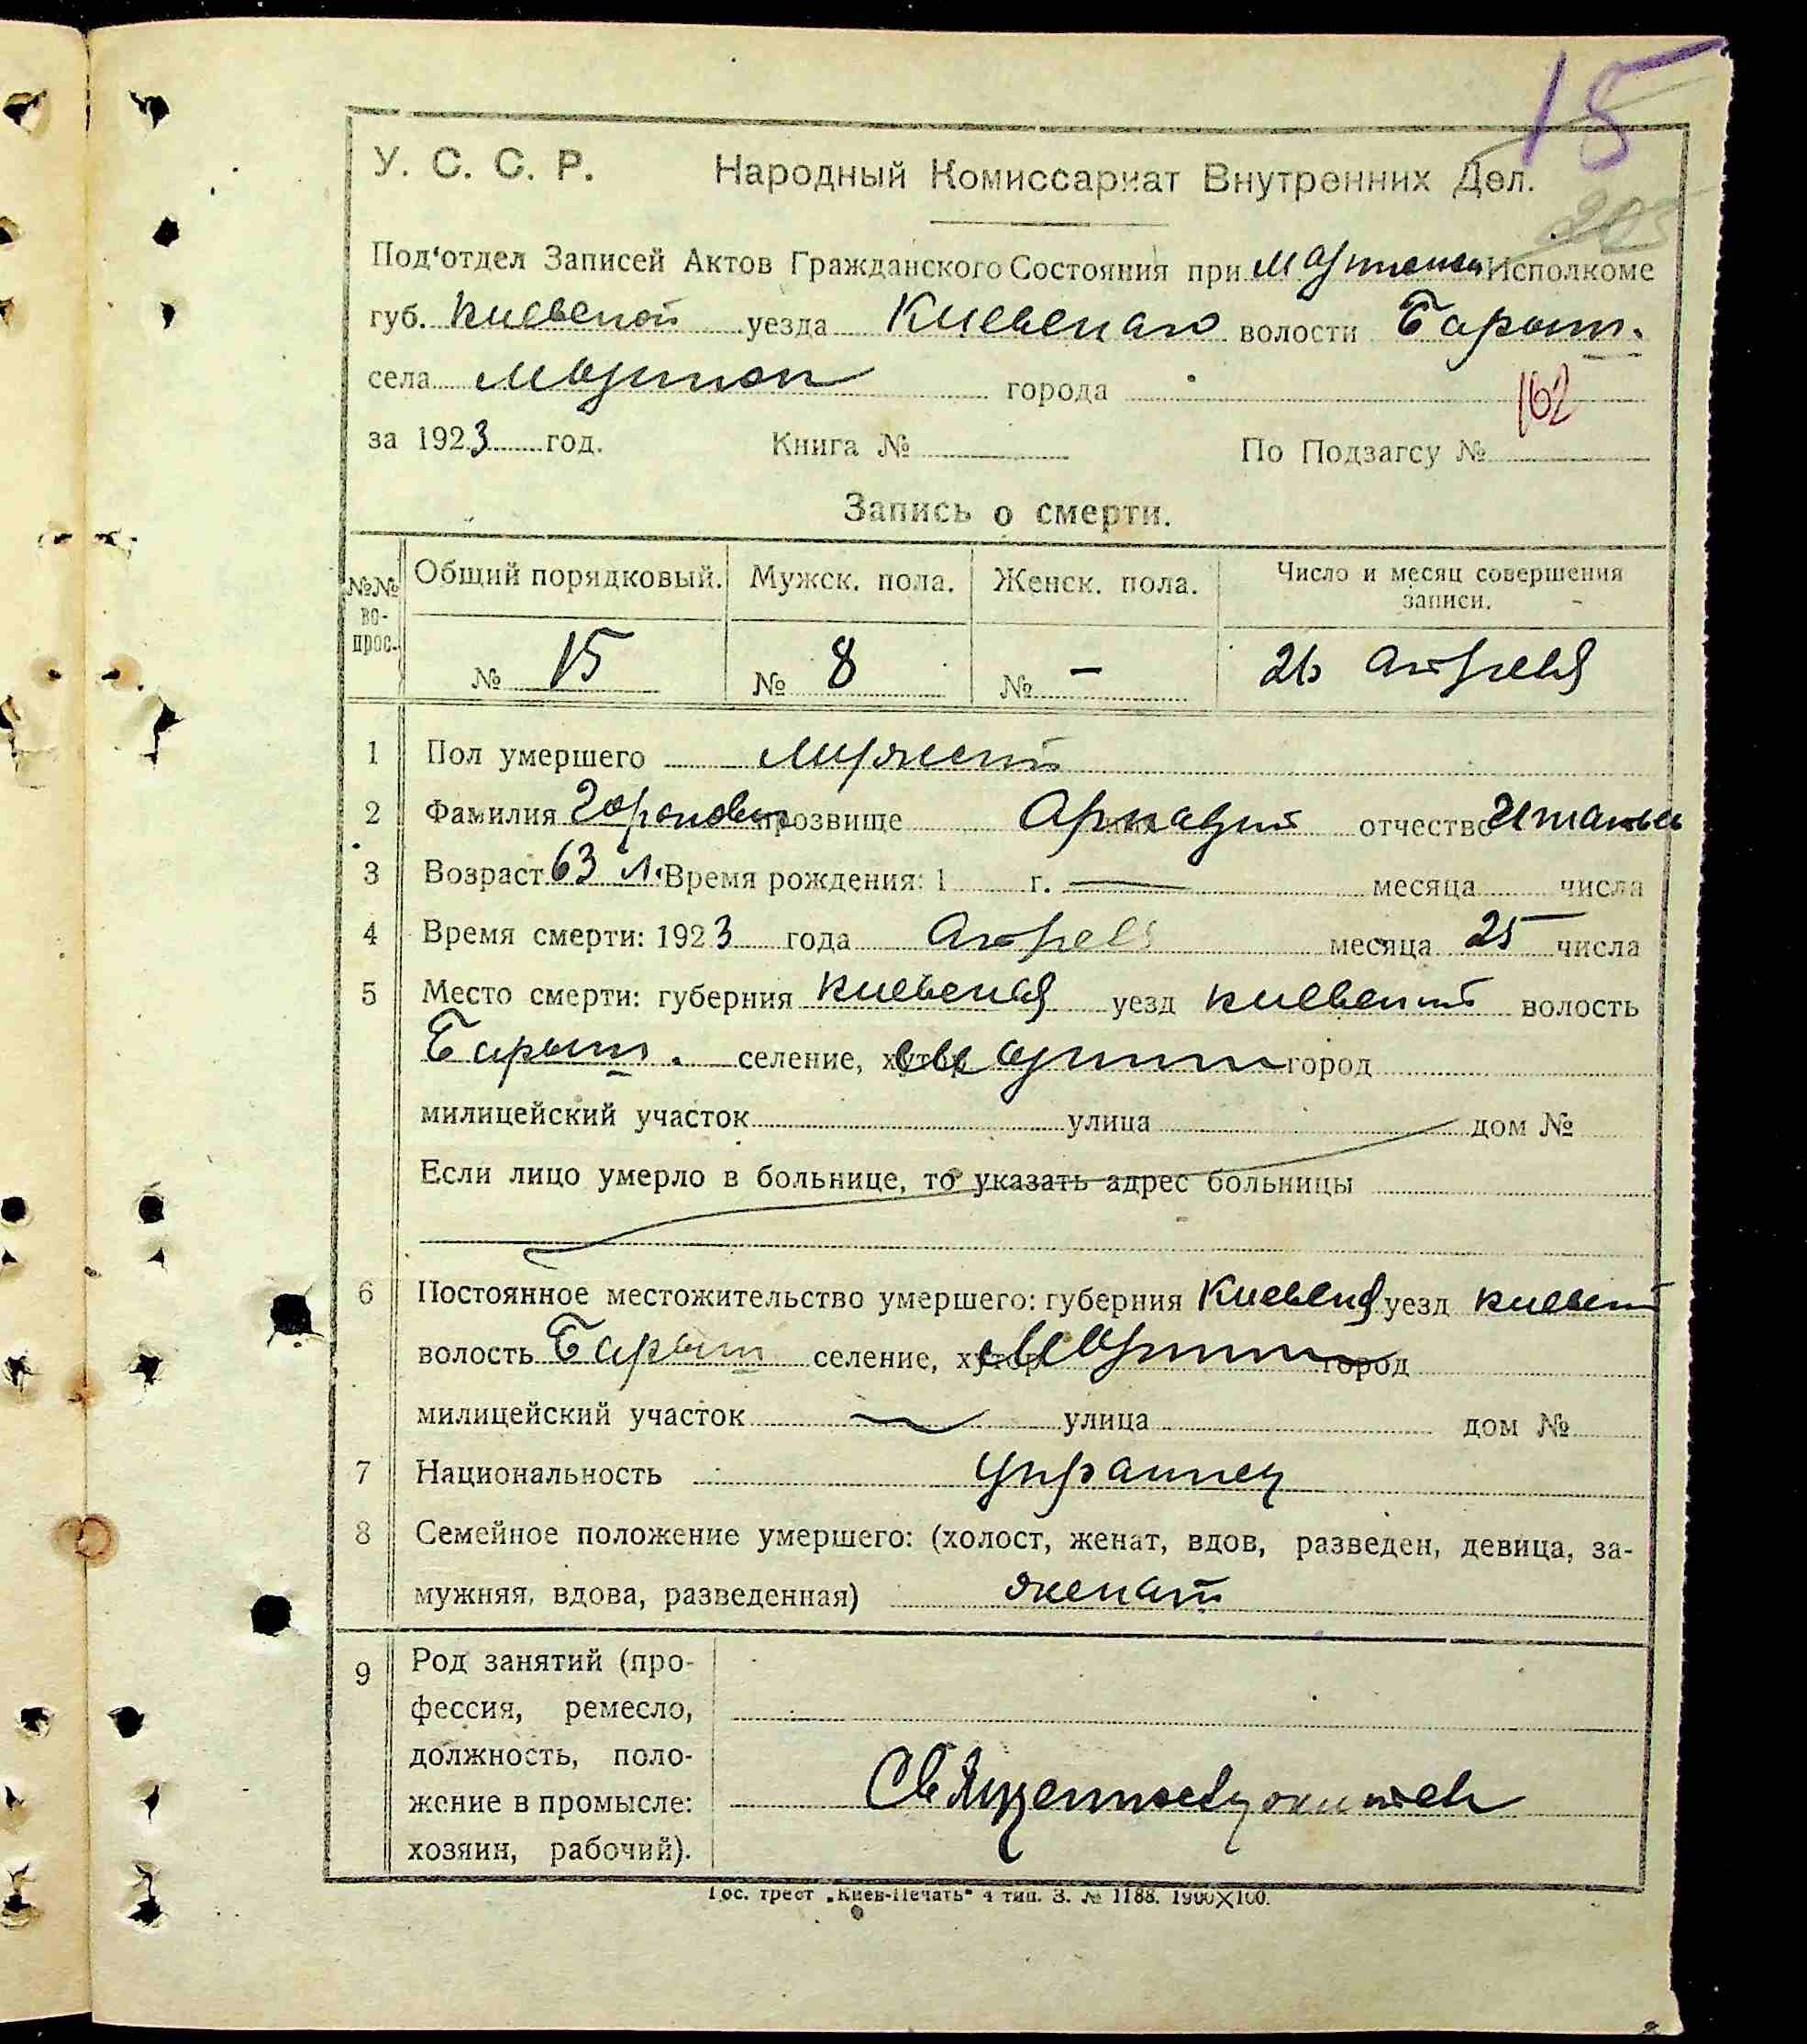 15
203
У. С. С. Р. Народный Комиссариат Внутренних Дел.
Под'отдел Записей Актов Гражданского Состояния при Исполкоме
губ. Киевской уезда Киевского волости Барыш.
села города
162
за 1923 год. Книга № По Подзагсу №
Запись о смерти.
№№ во-прос. Общий порядковый. Мужск. пола. Женск. пола. Число и месяц совершения записи.
№ 15 № 8 № — 26 апреля
1 Пол умершего мужской
2 Фамилия прозвище Аркадий отчество
3 Возраст 63 л. Время рождения: 1 г. — месяца числа
4 Время смерти: 1923 года апреля месяца 25 числа
5 Место смерти: губерния Киевская уезд Киевский волость
Барыш. селение, хутор город
милицейский участок улица дом №
Если лицо умерло в больнице, то указать адрес больницы
6 Постоянное местожительство умершего: губерния Киевская уезд Киевский
волость Барыш селение, хутор город
милицейский участок улица дом №
7 Национальность украинец
8 Семейное положение умершего: (холост, женат, вдов, разведен, девица, за-
мужняя, вдова, разведенная) женат
9 Род занятий (про-
фессия, ремесло,
должность, поло-
жение в промысле:
хозяин, рабочий).
Священнослужитель
Гос. трест „Киев-Печать" 4 тип. З. № 1188. 1900×100.